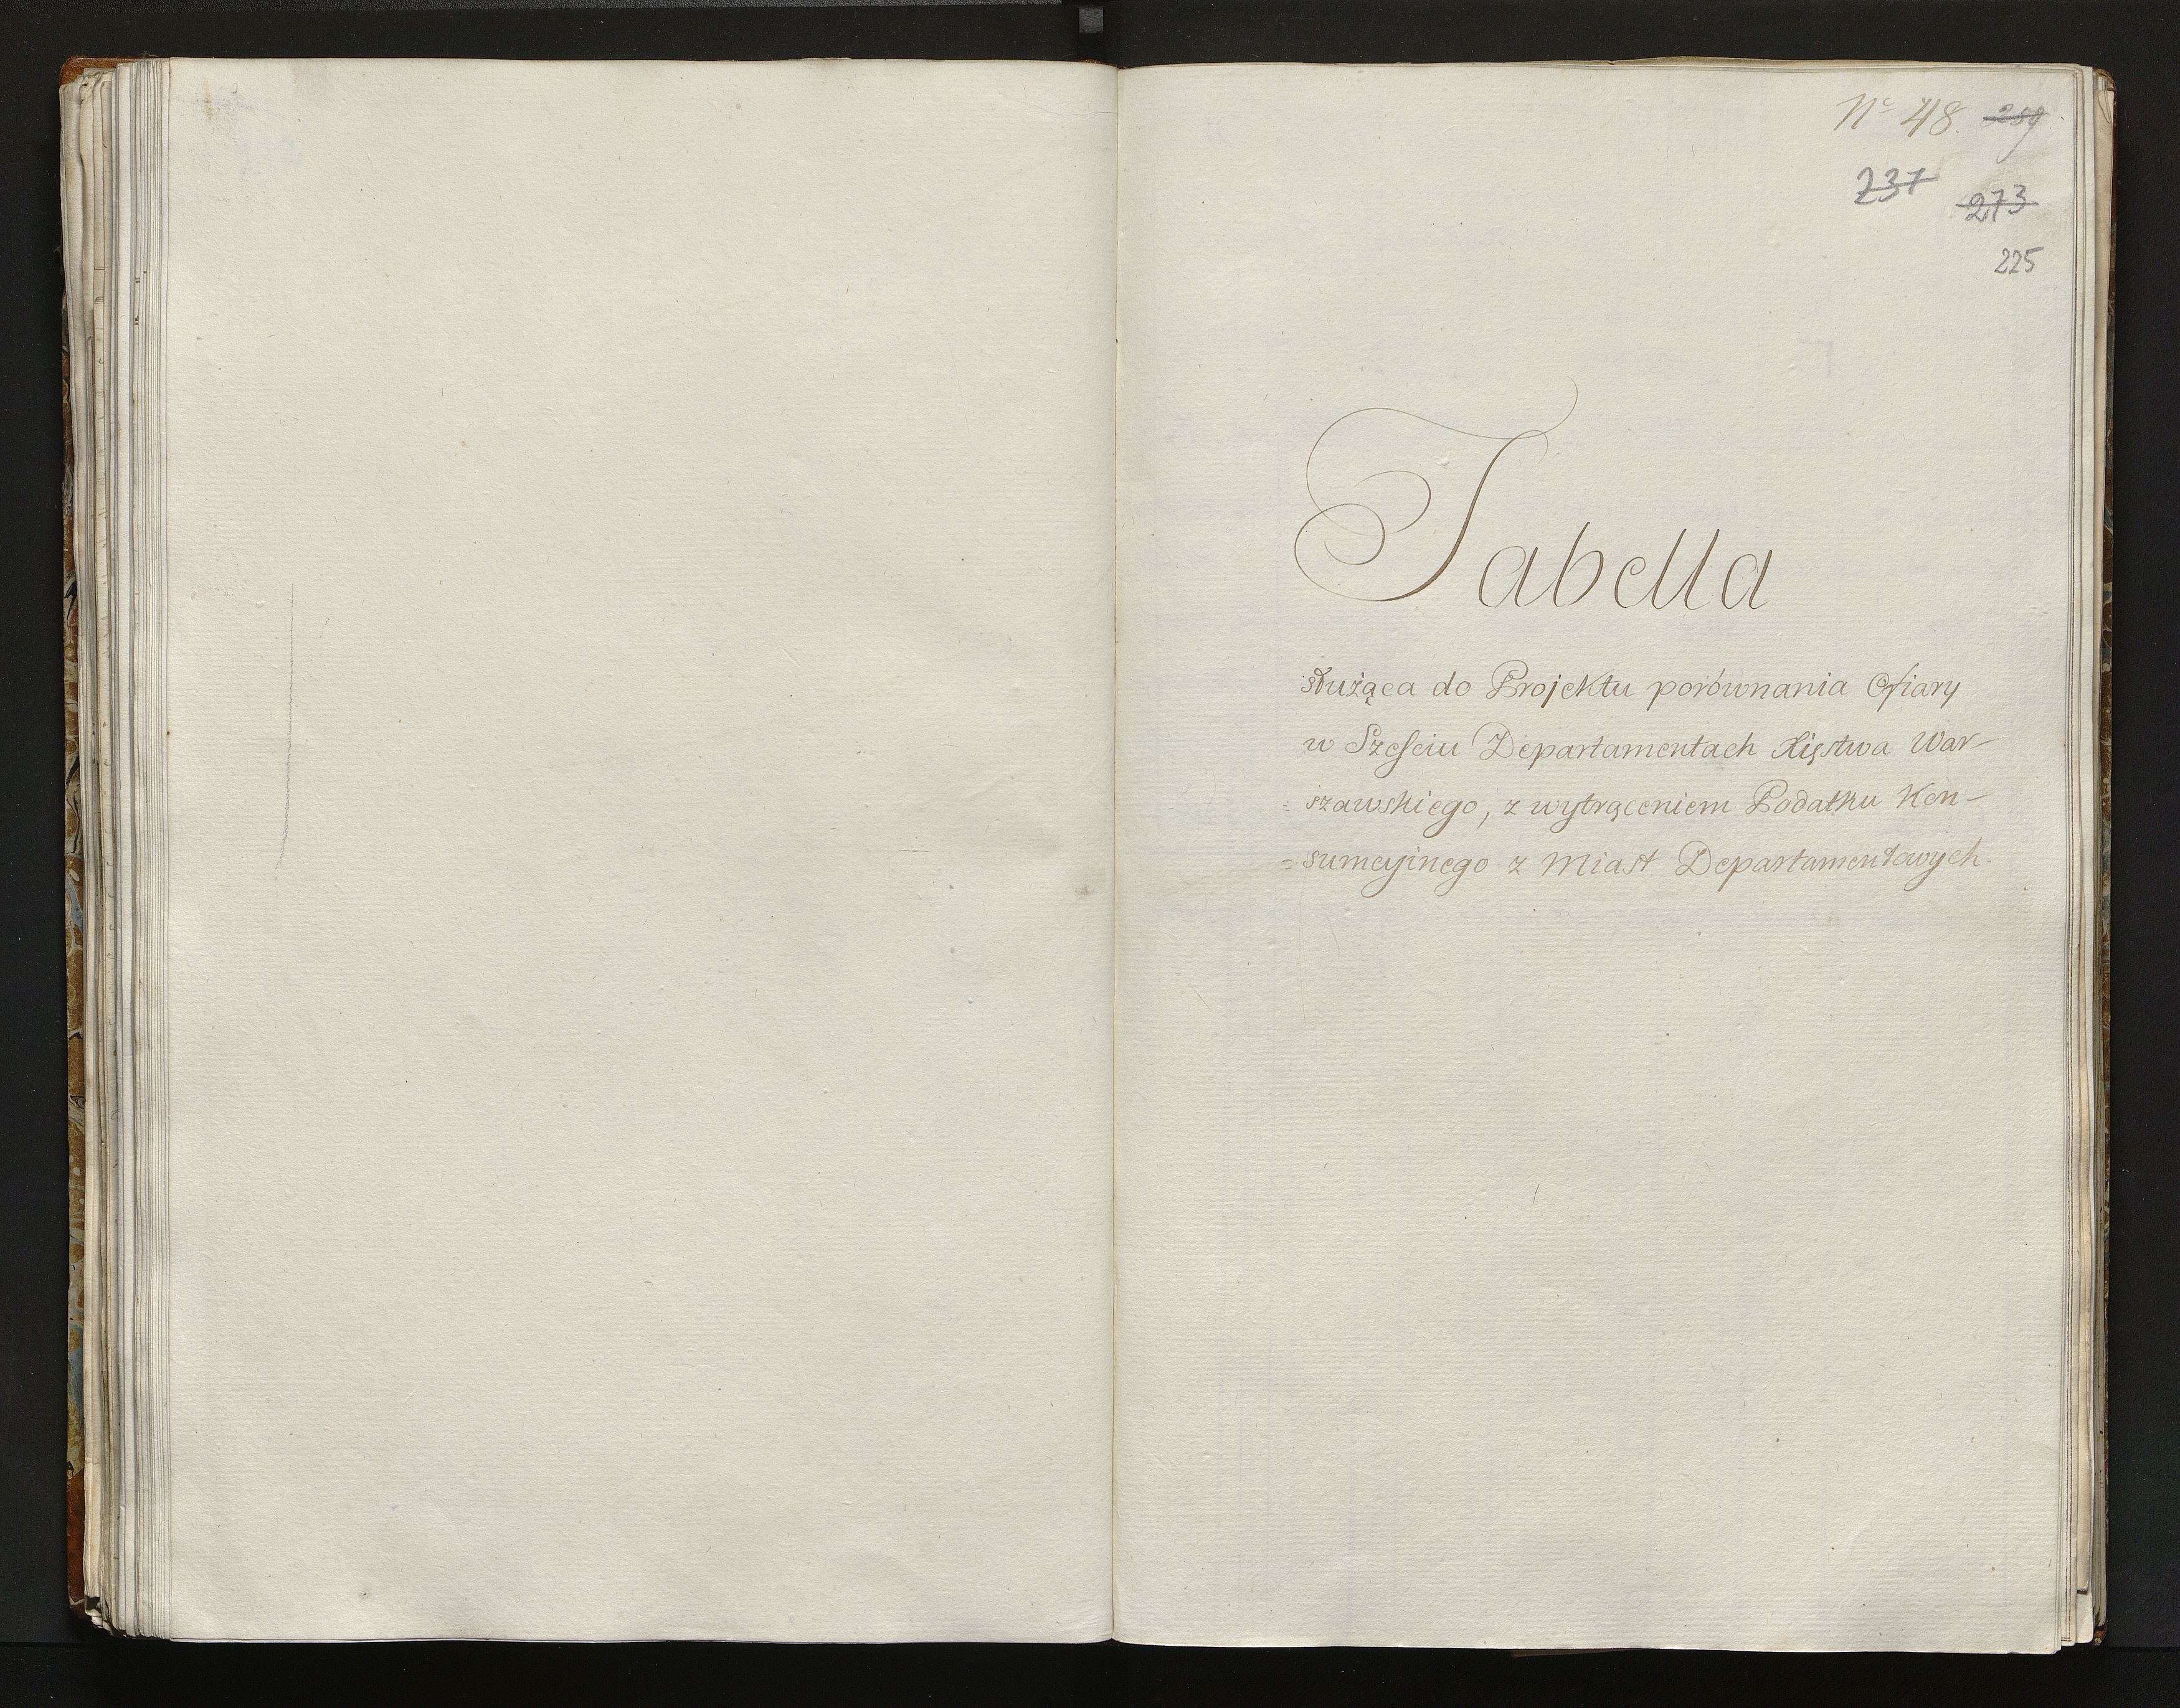 No 48. 259
237
273
225
Tabella
służąca do Projektu porównania Ofiary
w Sześciu Departamentach Xięstwa War-
= szawskiego, z wytrąceniem Podatku Kon-
= sumcyinego z Miast Departamentowych.